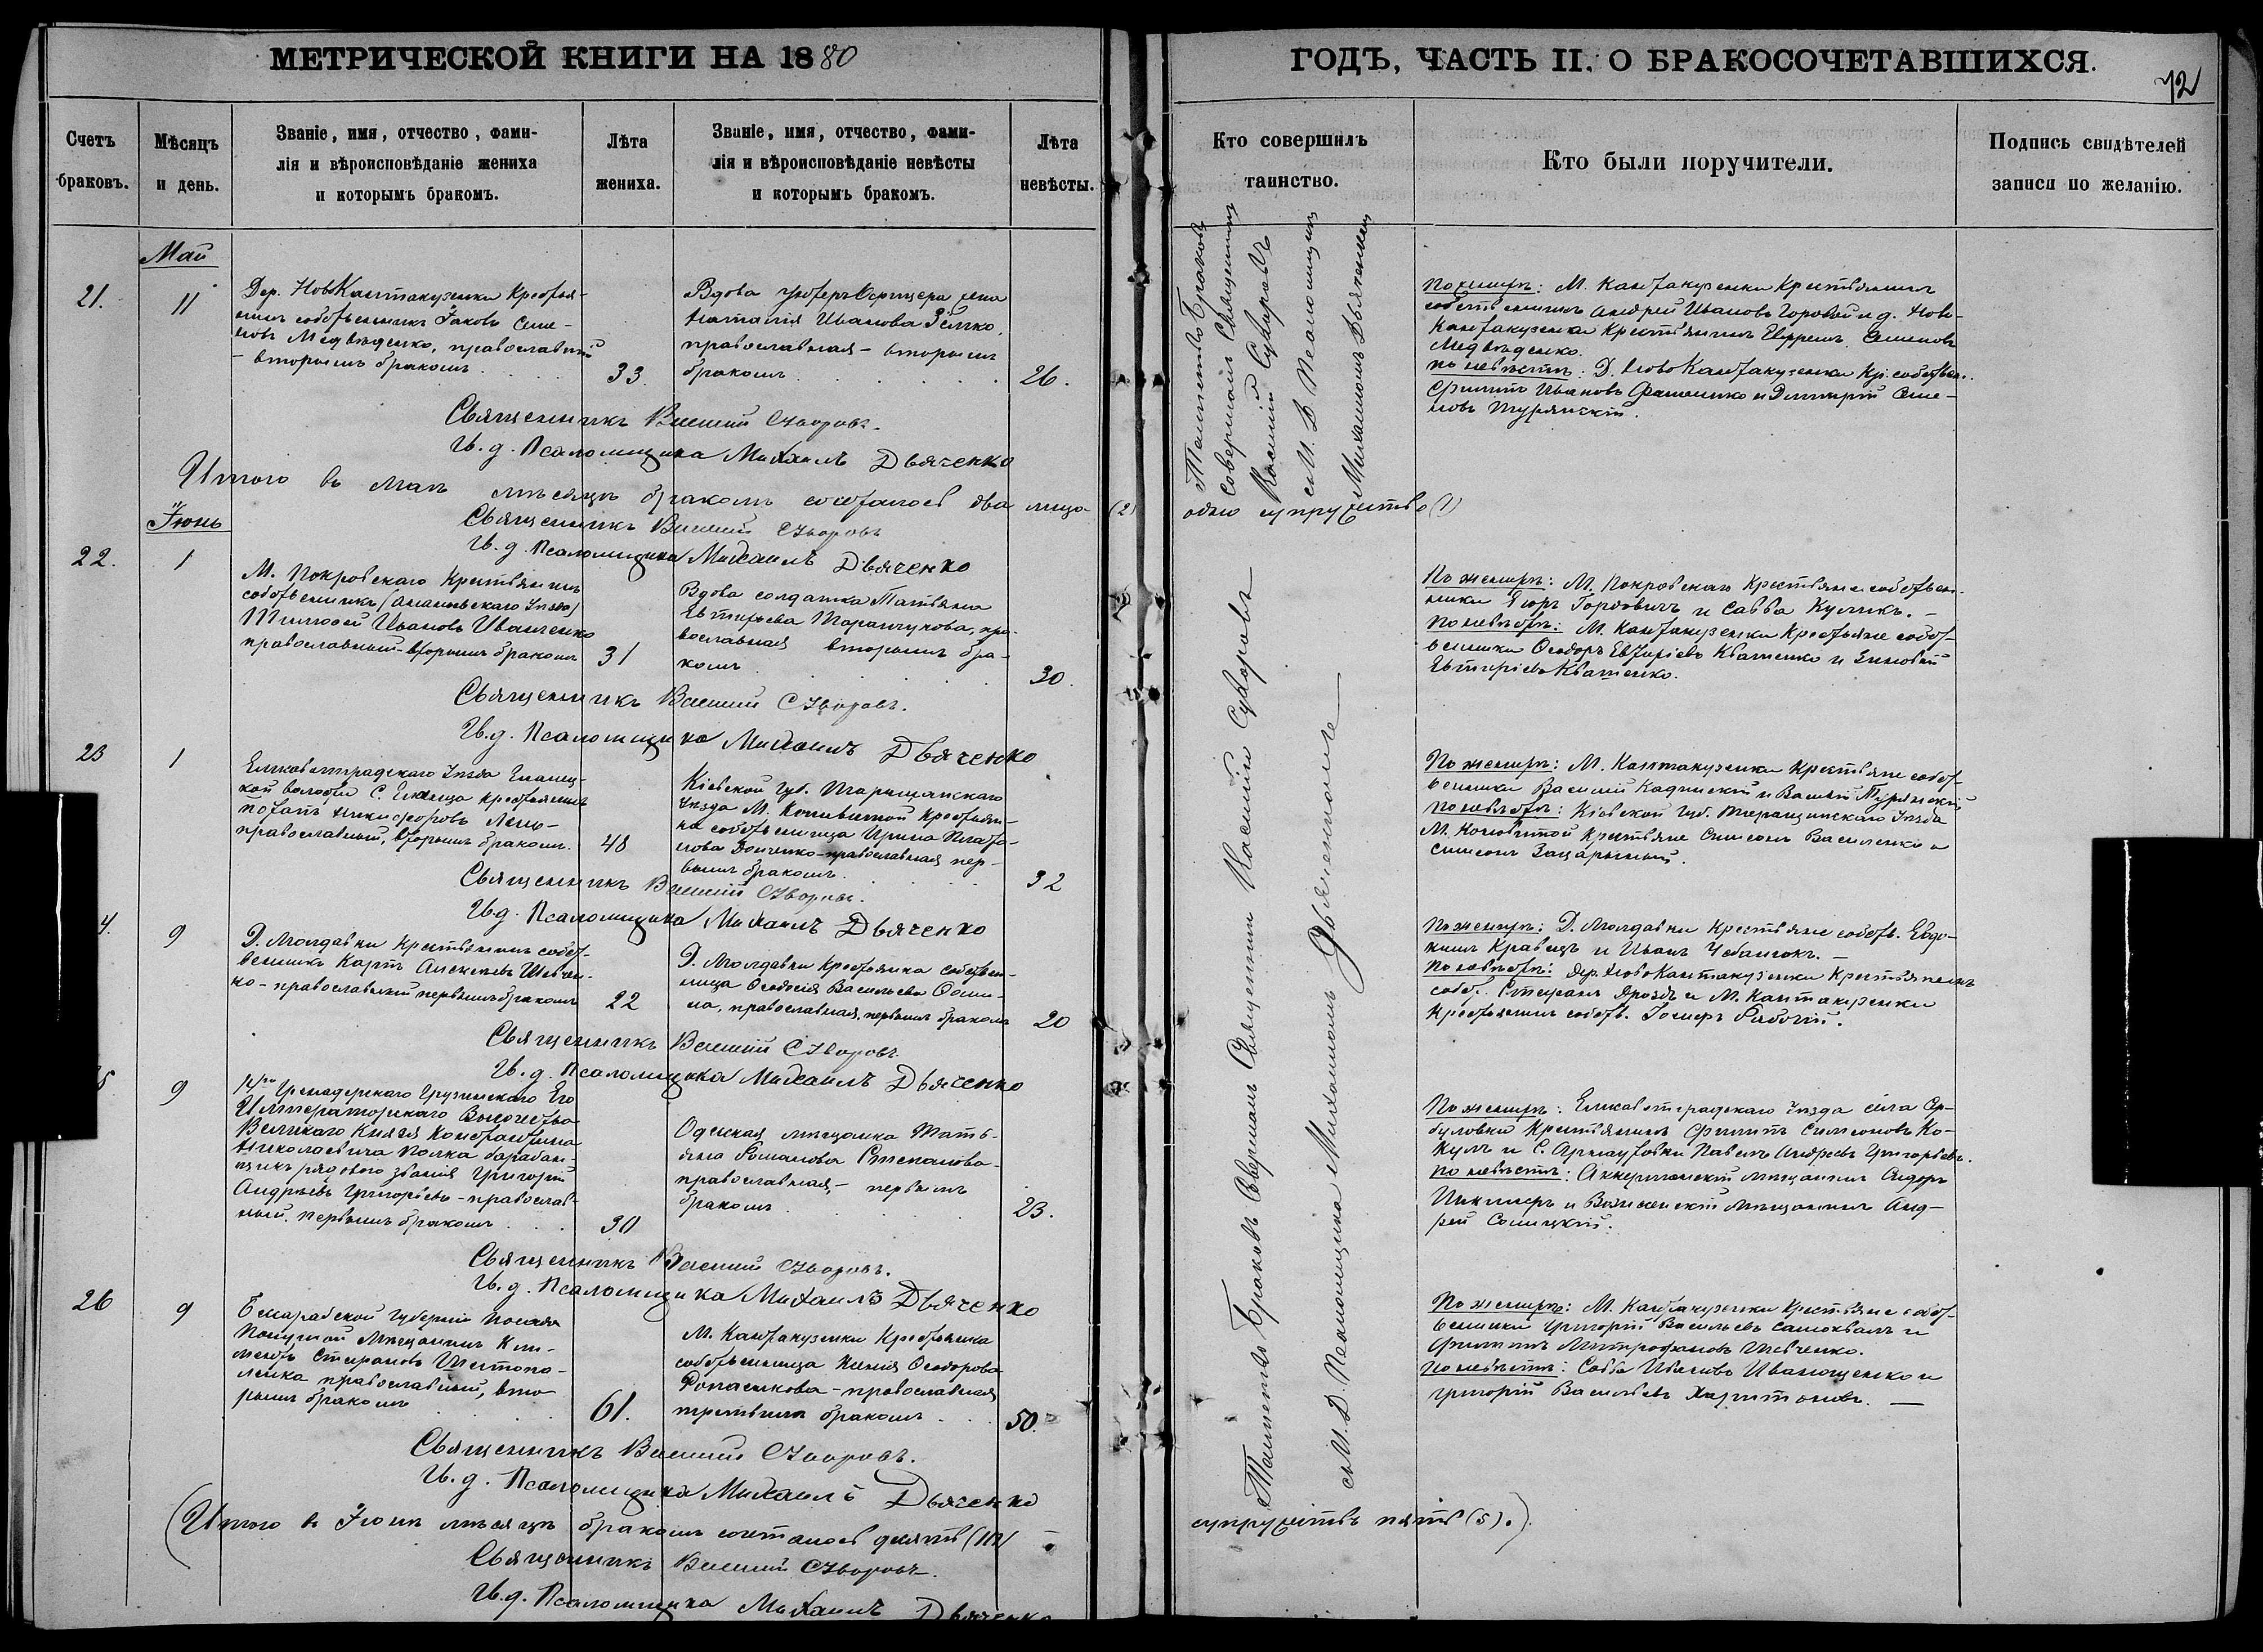 МЕТРИЧЕСКОЙ КНИГИ НА 1880
ГОДЪ, ЧАСТЬ II, О БРАКОСОЧЕТАВШИХСЯ.
72
Счетъ
браковъ.
Мѣсяцъ
и день.
Званіе, имя, отчество, фами-
лія и вѣроисповѣданіе жениха
и которымъ бракомъ.
Лѣта
жениха.
Званіе, имя, отчество, фами-
лія и вѣроисповѣданіе невѣсты
и которымъ бракомъ.
Лѣта
невѣсты.
Кто совершилъ
таинство.
Кто были поручители.
Подпись свидѣтелей
записи по желанію.
Май
21.
11
Дер. НовоКантакузенки Крестья-
нинъ собственникъ Іаковъ Семе-
новъ Медвѣденко, православный
- вторымъ бракомъ
33.
Вдова унтеръ Офицера жена
Наталія Иванова
православная - вторымъ
бракомъ
26.
Таинство Браковъ
совершалъ Священникъ
Василій Суворовъ
съ И. Д. Псаломщика
Михаиломъ Дьяченкомъ
По женихѣ: М. Кантакузенки Крестьянинъ
собственникъ Андрей Ивановъ Горовой и д. Ново-
Кантакузенки Крестьянинъ Ефремъ Семеновъ
Медвѣденко.
по невѣстѣ: Д. НовоКантакузенки Кр. собствен.
Филиппъ Ивановъ и Димитрій Семе-
новъ Турянскій.
Священникъ Василій Суворовъ.
И. д. Псаломщика Михаилъ Дьяченко
Итого въ Маѣ мѣсяцѣ бракомъ сочеталось два лица (2) одно супружество (1)
Священникъ Василій Суворовъ
И. д. Псаломщика Михаилъ Дьяченко
Іюнь
22.
1
М. Покровскаго Крестьянинъ
собственникъ (Ананьевскаго Уѣзда)
Тимофей Ивановъ Иванченко
православный - вторымъ бракомъ
31
Вдова солдатка Татьяна
Евтифьева Таранчукова, пра-
вославная вторымъ бра-
комъ
30.
По женихѣ: М. Покровскаго Крестьяне собствен-
ники Гордовичъ и Савва Куликъ. -
По невѣстѣ: М. Кантакузенки Крестьяне собст-
венники Ѳеодоръ Квашенко и Зиновій
Квашенко.
Священникъ Василій Суворовъ.
И. д. Псаломщика Михаилъ Дьяченко
23
1
Елисаветградскаго Уѣзда Еланец-
кой волости С. Еланца Крестьянинъ
Никифоровъ
православный, вторымъ бракомъ.
48
Кіевской Губ. Таращанскаго
Уѣзда М. Крестьян-
ка собственница Ирина Плато-
нова - православная пер-
вымъ бракомъ.
32
По женихѣ: М. Кантакузенки Крестьяне собст-
венники Василій и Василій Турянскій
По невѣстѣ: Кіевской Губ. Таращанскаго Уѣзда
М. Крестьяне Симеонъ Василенко и
Симеонъ
Священникъ Василій Суворовъ.
И. д. Псаломщика Михаилъ Дьяченко
4.
9
Д. Молдавки Крестьянинъ собст-
венникъ Карпъ Алексѣевъ Шевчен-
ко - православный первымъ бракомъ
22
Д. Молдавки Крестьянка собствен-
ница Ѳеодосія Васильева
православная, первымъ бракомъ
20
По женихѣ: Д. Молдавки Крестьяне собств. Евдо-
кимъ Кравецъ и Иванъ Чебанюкъ. -
По невѣстѣ: Дер. НовоКантакузенки Крестьянинъ
собст. Стефанъ Дроздъ и М. Кантакузенки
Крестьянинъ собств. Іосифъ Рабочій.
Священникъ Василій Суворовъ
И. д. Псаломщика Михаилъ Дьяченко
5
9
Гренадерскаго Грузинскаго Его
Императорскаго Высочества
Великаго Князя Константина
Николаевича полка барабан-
щикъ рядового званія Григорій
Андреевъ Григорьевъ - православ-
ный, первымъ бракомъ
30
Одесская мѣщанка Тать-
яна Романова Степанова -
православная, - первымъ
бракомъ
23.
По женихѣ: Елисаветградскаго Уѣзда села Ар-
Крестьянинъ Филиппъ Симеоновъ Ко-
и С. Арнаутовки Павелъ Андреевъ Григорьевъ.
по невѣстѣ: Аккерманскій мѣщанинъ Сидоръ
и Вознесенскій мѣщанинъ Анд-
рей
Священникъ Василій Суворовъ.
И. д. Псаломщика Михаилъ Дьяченко
26
9
Бессарабской Губерніи Посада
мѣщанинъ Кли-
ментъ Стефановъ Шестопа-
православный, вто-
рымъ бракомъ
61.
М. Кантакузенки Крестьянка
собственница Ксенія Ѳеодорова
православная
третьимъ бракомъ
50.
Таинство Браковъ совершалъ Священникъ Василій Суворовъ
съ И. Д. Псаломщика Михаиломъ Дьяченкомъ
По женихѣ: М. Кантакузенки Крестьяне собст-
венники Григорій Васильевъ Самохвалъ и
Филиппъ Митрофановъ Шевченко.
по невѣстѣ: Савва Ивановъ Иванющенко и
Григорій Васильевъ Харитоновъ. -
Священникъ Василій Суворовъ.
И. д. Псаломщика Михаилъ Дьяченко
(Итого въ Іюнѣ мѣсяцѣ бракомъ сочеталось десять (10) - супружествъ пять (5).)
Священникъ Василій Суворовъ.
И. д. Псаломщика Михаилъ Дьяченко